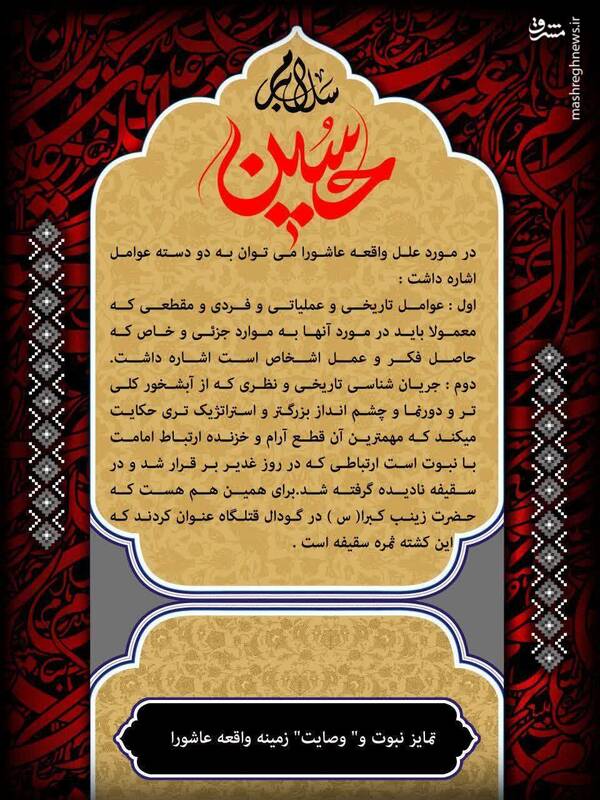 مشرق
mashreghnews.ir
سلام بر
حسین
در مورد علل واقعه عاشورا می توان به دو دسته عوامل
اشاره داشت :
اول : عوامل تاریخی و عملیاتی و فردی و مقطعی که
معمولا باید در مورد آنها به موارد جزئی و خاص که
حاصل فکر و عمل اشخاص است اشاره داشت.
دوم : جریان شناسی تاریخی و نظری که از آبشخور کلی
تر و دورنما و چشم انداز بزرگتر و استراتژیک تری حکایت
میکند که مهمترین آن قطع آرام و خزنده ارتباط امامت
با نبوت است ارتباطی که در روز غدیر بر قرار شد و در
سقیفه نادیده گرفته شد.برای همین هم هست که
حضرت زینب کبرا( س ) در گودال قتلگاه عنوان کردند که
این کشته ثمره سقیفه است .
تمایز نبوت و" وصایت" زمینه واقعه عاشورا